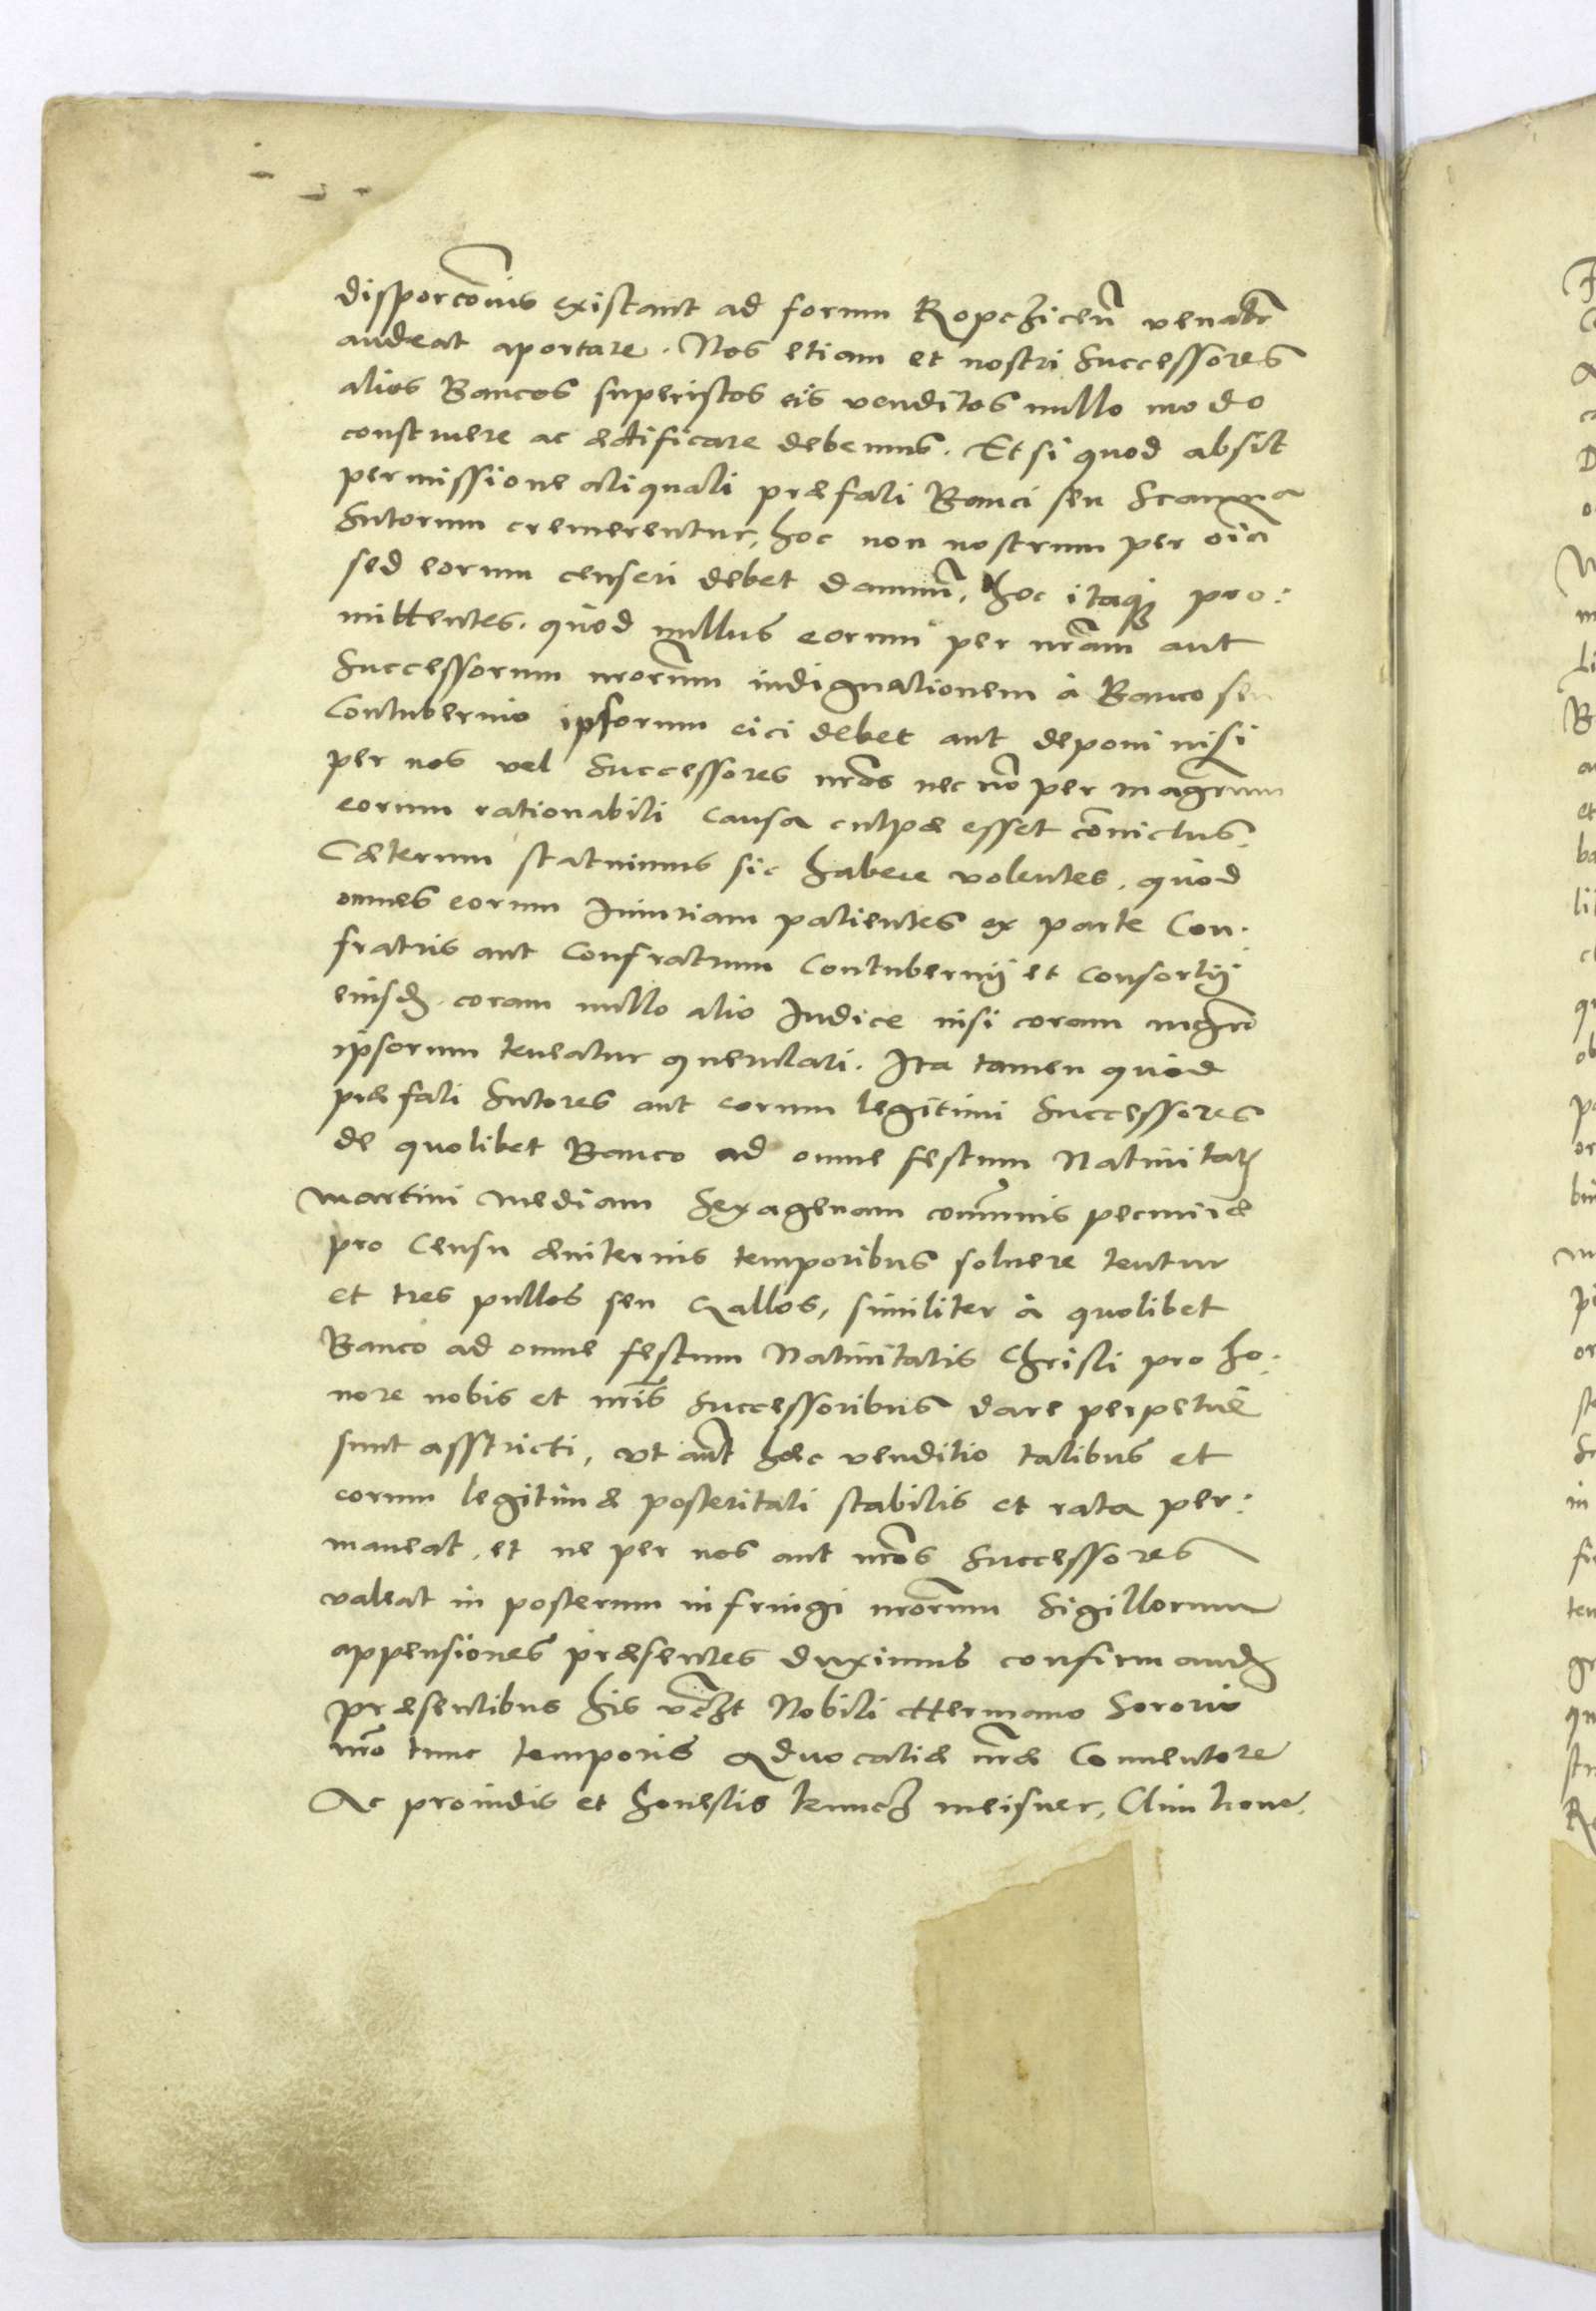 disporcōnis existant ad forum Ropchiceñ
audeat aportare. Nos etiam et nostri Successores
alios Bancos superistos eis venditos nullo modo
construere ac ædificare debemus. Et si quod absit
permissione aliquali præfati Banci seu Scamna
Sutorum cremerentur, hoc non nostrum per oīa
sed eorum censeri debet damnū, hoc itaq; pro:
mittentes. quod nullus eorum per nr̄am aut
Successorum nr̄orum indignationem à Banco seu
Contubernio ipsorum eici debet aut deponi nisi
per nos vel Successores nr̄os nec nō per magr̄um
eorum rationabili causa culpæ esset cōuictus.
Cæterum statuimus sic habere volentes, quod
omnes eorum Iniuriam patientes ex parte Con:
fratris aut Confratrum Contubernij et Consortij
eiusd. coram nullo alio Iudice nisi coram mgr̄o
ipsorum teneatur querulari. Ita tamen quod
præfati Sutores aut eorum legitimi Successores
de quolibet Banco ad omne festum Natiuitatis
Martini mediam Sexagenam cōmunis pecuniæ
pro Censu æuiternis temporibus soluere tentur
et tres pullos seu Gallos, similiter à quolibet
Banco ad omne festum Natiuitatis Christi pro ho:
nore nobis et nr̄is Successoribus dare perpetuè
sunt asstricti, vt aūt hæc venditio talibus et
eorum legitimæ posteritati stabilis et rata per:
maneat, et ne per nos aut nr̄os Successores
valeat in posterum infringi nr̄orum Sigillorum
appensiones præsentes duximus confirmand.
Præsentibus his vczt Nobili Hermano Sororio
nr̄o tunc temporis aduocatiæ nr̄æ Conuentore
Ac prouidis et honestis kunczē meisner,